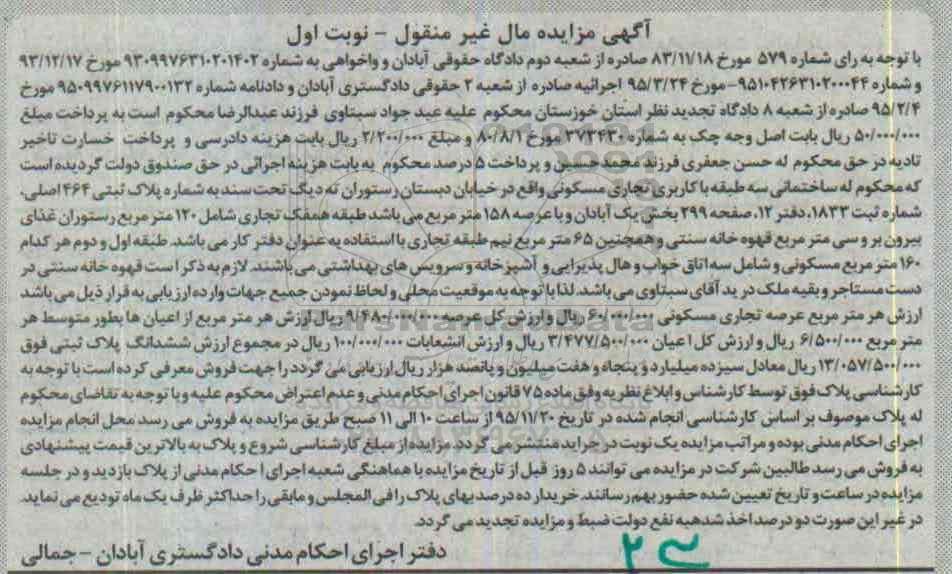 آگهی مزایده مال غیر منقول - نوبت اول
با توجه به رای شماره ۵۷۹ مورخ ۸۳/۱۱/۱۸ صادره از شعبه دوم دادگاه حقوقی آبادان و واخواهی به شماره ۹۳۰۹۹۷۶۳۱۰۲۰۱۴۰۲ مورخ ۹۳/۱۲/۱۷
و شماره ۹۵۱۰۴۲۶۳۱۰۲۰۰۰۴۴- مورخ ۹۵/۳/۲۴ اجرائیه صادره از شعبه ۲ حقوقی دادگستری آبادان و دادنامه شماره ۹۵۰۹۹۷۶۱۱۷۹۰۰۱۳۲ مورخ
۹۵/۲/۴ صادره از شعبه ۸ دادگاه تجدید نظر استان خوزستان محکوم علیه عبد جواد سبتاوی فرزند عبدالرضا محکوم است به پرداخت مبلغ
۵۰/۰۰۰/۰۰۰ ریال بابت اصل وجه چک به شماره ۳۷۳۴۳۰ مورخ ۸۰/۸/۱ و مبلغ ۲/۲۰۰/۰۰۰ ریال بابت هزینه دادرسی و پرداخت خسارت تاخیر
تادیه در حق محکوم له حسن جعفری فرزند محمدحسین و پرداخت ۵ درصد محکوم به بابت هزینه اجرائی در حق صندوق دولت گردیده است
که محکوم له ساختمانی سه طبقه با کاربری تجاری مسکونی واقع در خیابان دبستان رستوران ته دیگ تحت سند به شماره پلاک ثبتی ۴۶۴ اصلی،
شماره ثبت ۱۸۳۳، دفتر ۱۲، صفحه ۲۹۹ بخش یک آبادان و با عرصه ۱۵۸ متر مربع می باشد طبقه همفک تجاری شامل ۱۲۰ متر مربع رستوران غذای
بیرون بر و سی متر مربع قهوه خانه سنتی و همچنین ۶۵ متر مربع نیم طبقه تجاری با استفاده به عنوان دفتر کار می باشد. طبقه اول و دوم هر کدام
۱۶۰ متر مربع مسکونی و شامل سه اتاق خواب و هال پذیرایی و آشپزخانه و سرویس های بهداشتی می باشند. لازم به ذکر است قهوه خانه سنتی در
دست مستاجر و بقیه ملک در ید آقای سبتاوی می باشد. لذا با توجه به موقعیت محلی و لحاظ نمودن جمیع جهات وارده ارزیابی به قرار ذیل می باشد
ارزش هر متر مربع عرصه تجاری مسکونی ۶۰/۰۰۰/۰۰۰ ریال و ارزش کل عرصه ۹/۴۸۰/۰۰۰/۰۰۰ ریال ارزش هر متر مربع از اعیان ها بطور متوسط هر
متر مربع ۶/۵۰۰/۰۰۰ ریال و ارزش کل اعیان ۳/۴۷۷/۵۰۰/۰۰۰ ریال و ارزش انشعابات ۱۰۰/۰۰۰/۰۰۰ ریال در مجموع ارزش ششدانگ پلاک ثبتی فوق
۱۳/۰۵۷/۵۰۰/۰۰۰ ریال معادل سیزده میلیارد و پنجاه و هفت میلیون و پانصد هزار ریال ارزیابی می گردد را جهت فروش معرفی کرده است با توجه به
کارشناسی پلاک فوق توسط کارشناس و ابلاغ نظریه وفق ماده ۷۵ قانون اجرای احکام مدنی و عدم اعتراض محکوم علیه و با توجه به تقاضای محکوم
له پلاک موصوف بر اساس کارشناسی انجام شده در تاریخ ۹۵/۱۱/۲۰ از ساعت ۱۰ الی ۱۱ صبح طریق مزایده به فروش می رسد محل انجام مزایده
اجرای احکام مدنی بوده و مراتب مزایده یک نوبت در جراید منتشر می گردد. مزایده از مبلغ کارشناسی شروع و پلاک به بالاترین قیمت پیشنهادی
به فروش می رسد طالبین شرکت در مزایده می توانند ۵ روز قبل از تاریخ مزایده با هماهنگی شعبه اجرای احکام مدنی از پلاک بازدید و در جلسه
مزایده در ساعت و تاریخ تعیین شده حضور بهم رسانند. خریدار ده درصد بهای پلاک را فی المجلس و مابقی را حداکثر ظرف یک ماه تودیع می نماید.
در غیر این صورت دو درصد اخذ شدهبه نفع دولت ضبط و مزایده تجدید می گردد.
دفتر اجرای احکام مدنی دادگستری آبادان - جمالی
ParsNamadData